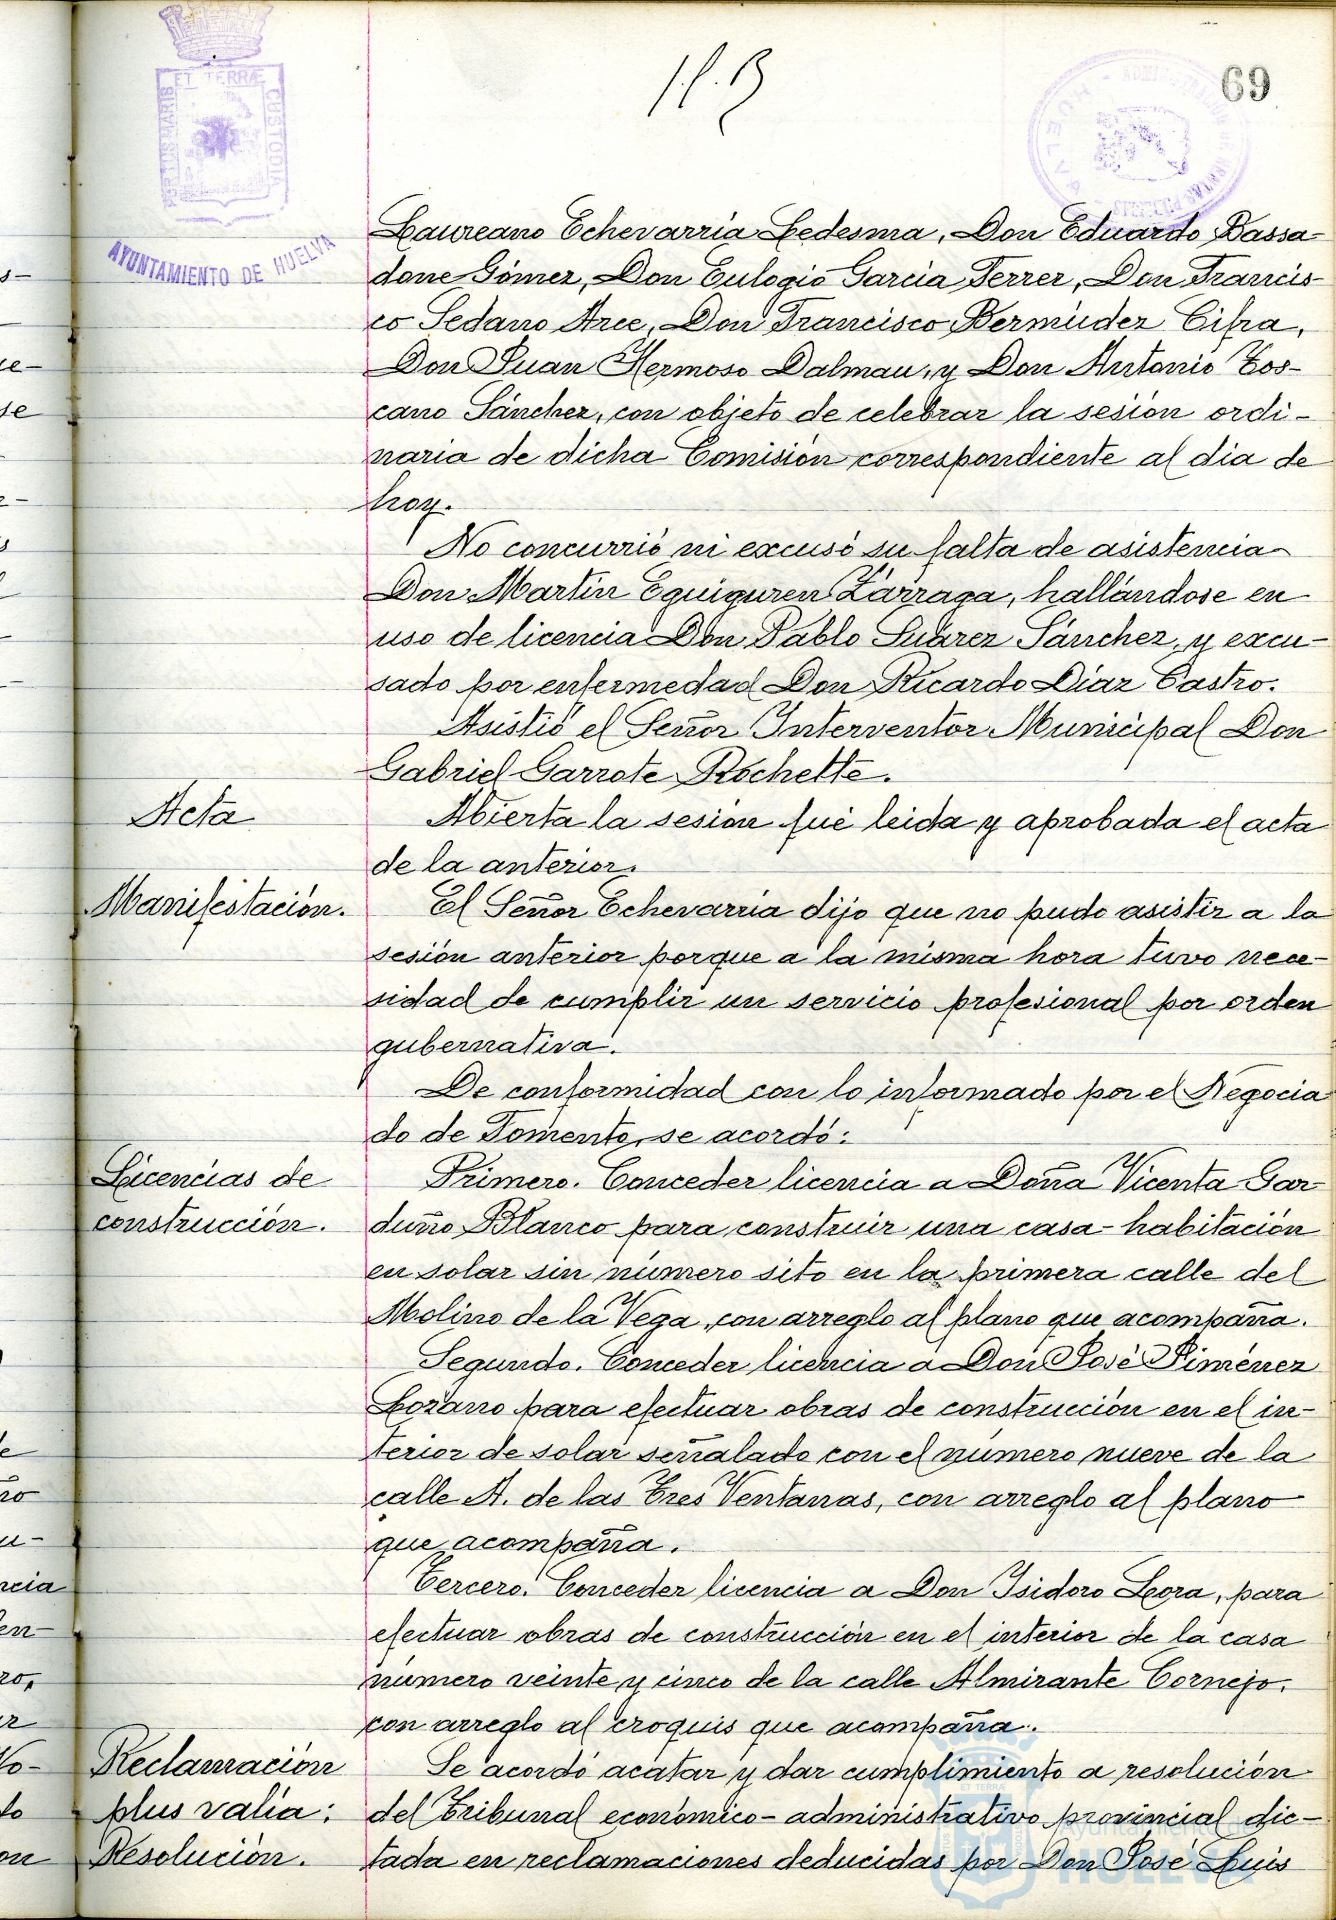 69
PORTUS MARIS ET TERRÆ CUSTODIA
AYUNTAMIENTO DE HUELVA
Laureano Echevarría Ledesma, Don Eduardo Bassa-
done Gómez, Don Eulogio García Ferrer, Don Francis-
co Sedano Arce, Don Francisco Bermúdez Cifra,
Don Juan Hermoso Dalmau, y Don Antonio Tos-
cano Sánchez, con objeto de celebrar la sesión ordi-
naria de dicha Comisión correspondiente al día de
hoy.
No concurrió ni excusó su falta de asistencia
Don Martín Eguiguren Zárraga, hallándose en
uso de licencia Don Pablo Suárez Sánchez, y excu-
sado por enfermedad Don Ricardo Díaz Castro.
Asistió el Señor Interventor Municipal Don
Gabriel Garrote Rochette.
Acta
Abierta la sesión fué leida y aprobada el acta
de la anterior.
Manifestación.
El Señor Echevarría dijo que no pudo asistir a la
sesión anterior porque a la misma hora tuvo nece-
sidad de cumplir un servicio profesional por orden
gubernativa.
De conformidad con lo informado por el Negocia
do de Fomento, se acordó:
Licencias de
construcción.
Primero. Conceder licencia a Doña Vicenta Gar
duño Blanco para construir una casa-habitación
en solar sin número sito en la primera calle del
Molino de la Vega, con arreglo al plano que acompaña.
Segundo. Conceder licencia a Don José Jiménez
Lozano para efectuar obras de construcción en el in-
terior de solar señalado con el número nueve de la
calle A. de las Tres Ventanas, con arreglo al plano
que acompaña.
Tercero. Conceder licencia a Don Isidoro Lora, para
efectuar obras de construcción en el interior de la casa
número veinte y cinco de la calle Almirante Cornejo,
con arreglo al croquis que acompaña.
Reclamación
plus valía:
Resolución.
Se acordó acatar y dar cumplimiento a resolución
del Tribunal económico-administrativo provincial dic-
tada en reclamaciones deducidas por Don José Luis
Ayuntamiento de
HUELVA